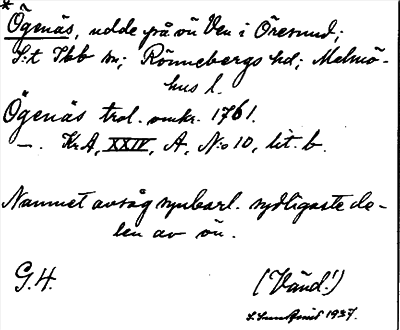 * Ögenäs, udde på ön Ven i Öresund;
S:t Ibb sn; Rönnebergs hd; Malmö-
hus l.
Ögenäs trol. omkr. 1761.
—. KrA, XXIV, A, N:o 10, lit. b.
Namnet avsåg synbarl. sydligaste de-
len av ön.
G.H.
(Vänd!)
1937.